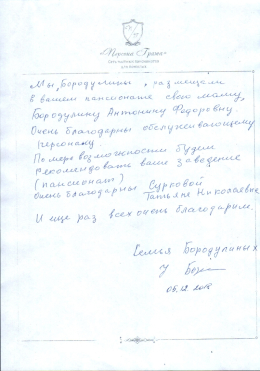 Мы, Бородулины, размещали
в вашем пансионате свою маму,
Бородулину Антонину Федоровну
Очень благодарны обслуживающему
персонажу.
По мере возможности будем
рекомендовать ваше заведение
(пансионат)
Очень благодарны Сурковой
Татьяне Николаевне
И еще раз всех очень благодарим.
Семья Бородулиных